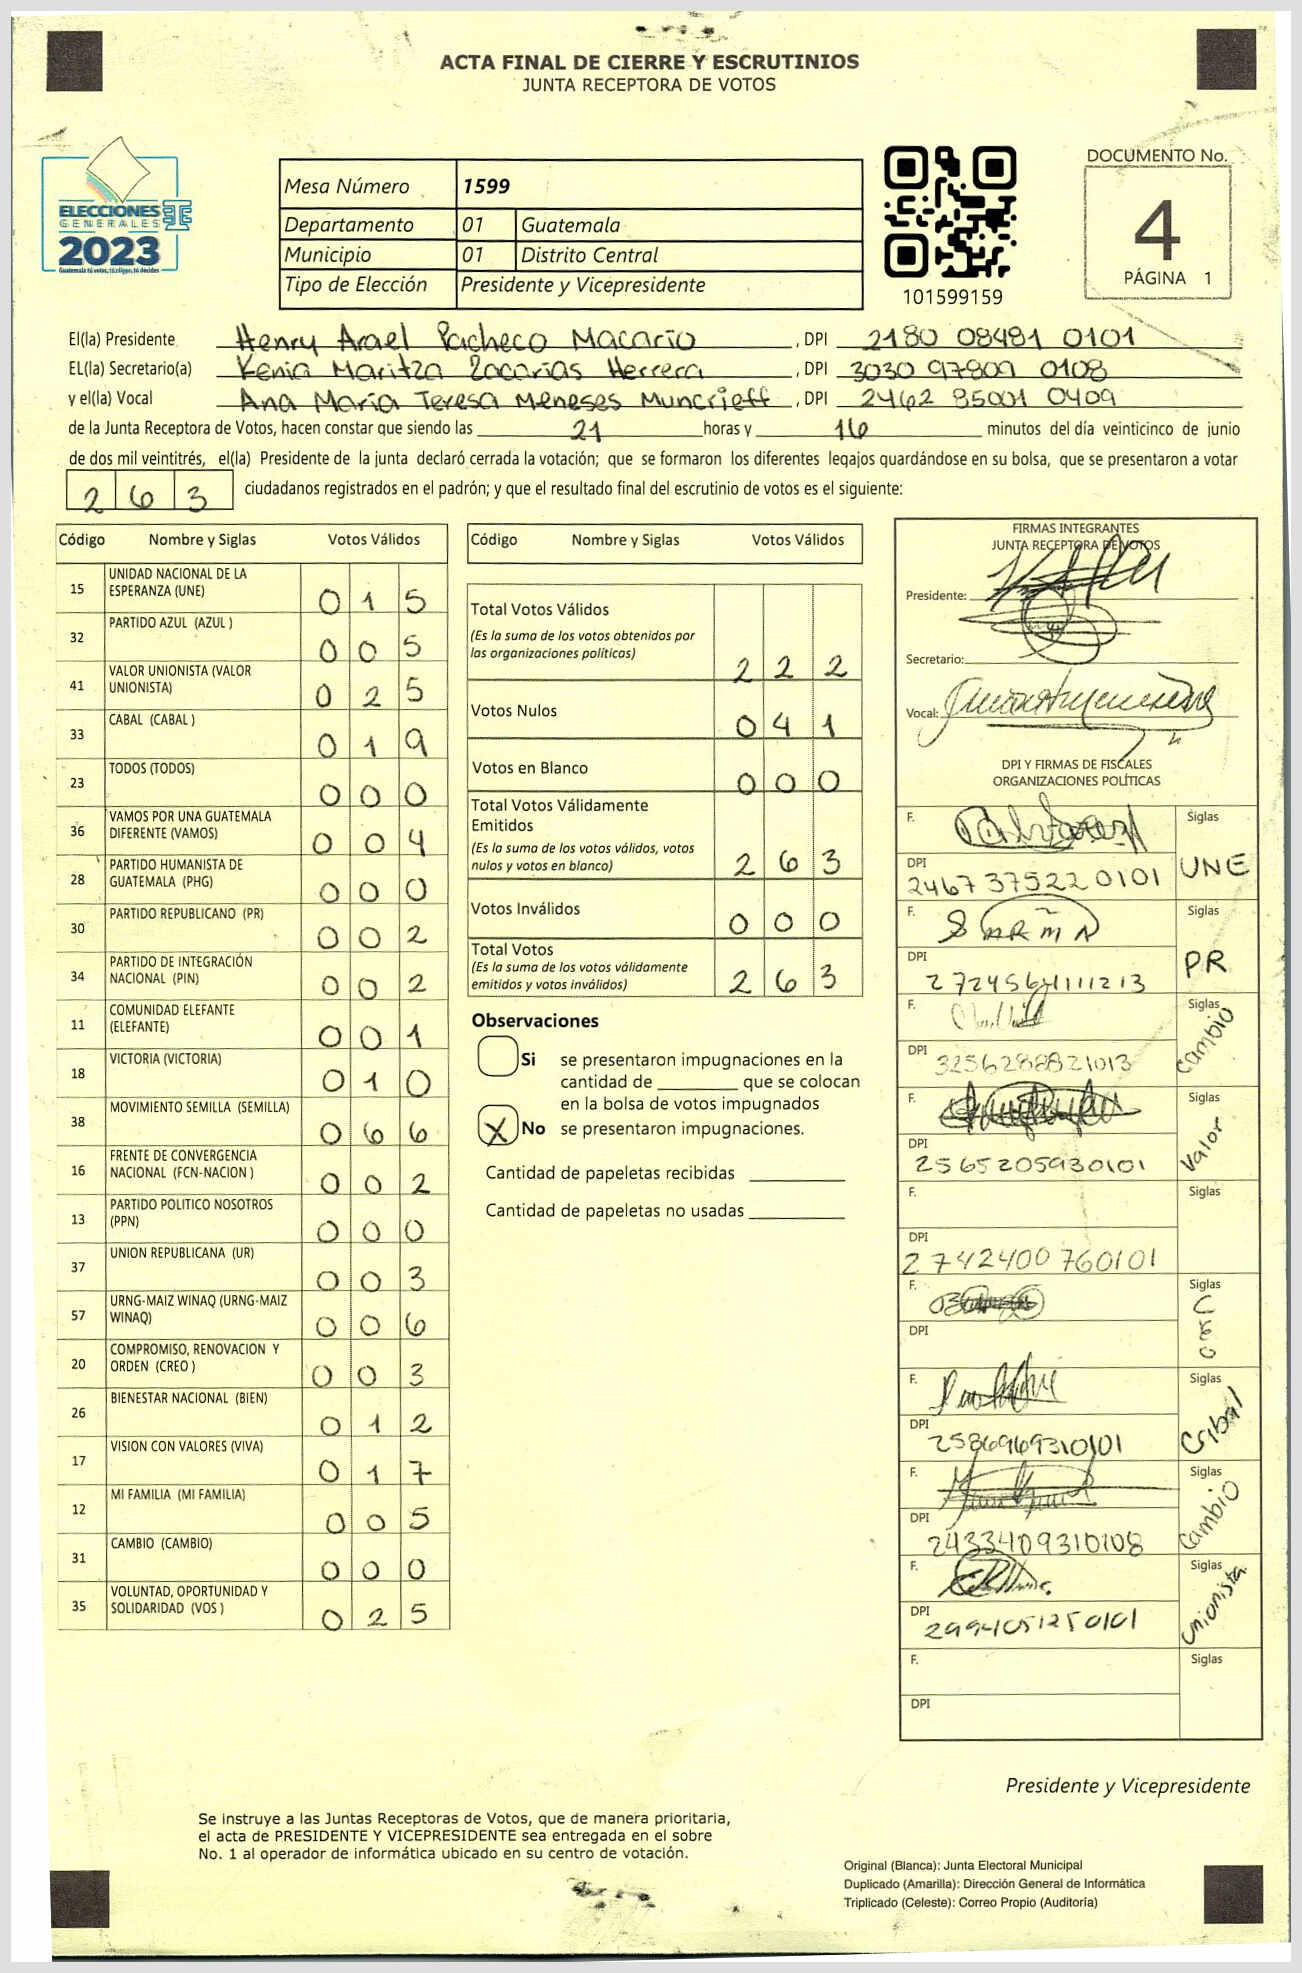 ACTA FINAL DE CIERRE Y ESCRUTINIOS
JUNTA RECEPTORA DE VOTOS
ELECCIONES
GENERALES
2023
Guatemala tú votas, tú eliges, tú decides
Mesa Número 1599
Departamento 01 Guatemala
Municipio 01 Distrito Central
Tipo de Elección Presidente y Vicepresidente
101599159
DOCUMENTO No.
4
PÁGINA 1
El(la) Presidente Henry Arael Pacheco Macario , DPI 2180 08481 0101
EL(la) Secretario(a) Kenia Maritza Zacarias Herrera , DPI 3030 97809 0108
y el(la) Vocal Ana Maria Teresa Meneses Muncrieff , DPI 2462 85001 0409
de la Junta Receptora de Votos, hacen constar que siendo las 21 horas y 16 minutos del día veinticinco de junio
de dos mil veintitrés, el(la) Presidente de la junta declaró cerrada la votación; que se formaron los diferentes legajos guardándose en su bolsa, que se presentaron a votar
263 ciudadanos registrados en el padrón; y que el resultado final del escrutinio de votos es el siguiente:
Código Nombre y Siglas Votos Válidos
15 UNIDAD NACIONAL DE LA
ESPERANZA (UNE) 0 1 5
32 PARTIDO AZUL (AZUL ) 0 0 5
41 VALOR UNIONISTA (VALOR
UNIONISTA) 0 2 5
33 CABAL (CABAL ) 0 1 9
23 TODOS (TODOS) 0 0 0
36 VAMOS POR UNA GUATEMALA
DIFERENTE (VAMOS) 0 0 4
28 PARTIDO HUMANISTA DE
GUATEMALA (PHG) 0 0 0
30 PARTIDO REPUBLICANO (PR) 0 0 2
34 PARTIDO DE INTEGRACIÓN
NACIONAL (PIN) 0 0 2
11 COMUNIDAD ELEFANTE
(ELEFANTE) 0 0 1
18 VICTORIA (VICTORIA) 0 1 0
38 MOVIMIENTO SEMILLA (SEMILLA) 0 6 6
16 FRENTE DE CONVERGENCIA
NACIONAL (FCN-NACION ) 0 0 2
13 PARTIDO POLITICO NOSOTROS
(PPN) 0 0 0
37 UNION REPUBLICANA (UR) 0 0 3
57 URNG-MAIZ WINAQ (URNG-MAIZ
WINAQ) 0 0 6
20 COMPROMISO, RENOVACION Y
ORDEN (CREO ) 0 0 3
26 BIENESTAR NACIONAL (BIEN) 0 1 2
17 VISION CON VALORES (VIVA) 0 1 7
12 MI FAMILIA (MI FAMILIA) 0 0 5
31 CAMBIO (CAMBIO) 0 0 0
35 VOLUNTAD, OPORTUNIDAD Y
SOLIDARIDAD (VOS ) 0 2 5
Código Nombre y Siglas Votos Válidos
Total Votos Válidos
(Es la suma de los votos obtenidos por
las organizaciones políticas) 2 2 2
Votos Nulos 0 4 1
Votos en Blanco 0 0 0
Total Votos Válidamente
Emitidos
(Es la suma de los votos válidos, votos
nulos y votos en blanco) 2 6 3
Votos Inválidos 0 0 0
Total Votos
(Es la suma de los votos válidamente
emitidos y votos inválidos) 2 6 3
Observaciones
Si se presentaron impugnaciones en la
cantidad de ________ que se colocan
en la bolsa de votos impugnados
X No se presentaron impugnaciones.
Cantidad de papeletas recibidas
Cantidad de papeletas no usadas
FIRMAS INTEGRANTES
JUNTA RECEPTORA DE VOTOS
Presidente:
Secretario:
Vocal:
DPI Y FIRMAS DE FISCALES
ORGANIZACIONES POLÍTICAS
F. Siglas
DPI 2467 37522 0101 UNE
F. Siglas
DPI PR
F. Siglas
DPI 3256288821013 Cambio
F. Siglas
DPI 2565205930101 Valor
F. Siglas
DPI 2742400760101
F. Siglas
DPI
F. Siglas
DPI 2586969310101
F. Siglas
DPI 2433409310108 Cambio
F. Siglas
DPI 2994051250101 Unionista
F. Siglas
DPI
Presidente y Vicepresidente
Se instruye a las Juntas Receptoras de Votos, que de manera prioritaria,
el acta de PRESIDENTE Y VICEPRESIDENTE sea entregada en el sobre
No. 1 al operador de informática ubicado en su centro de votación.
Original (Blanca): Junta Electoral Municipal
Duplicado (Amarilla): Dirección General de Informática
Triplicado (Celeste): Correo Propio (Auditoría)